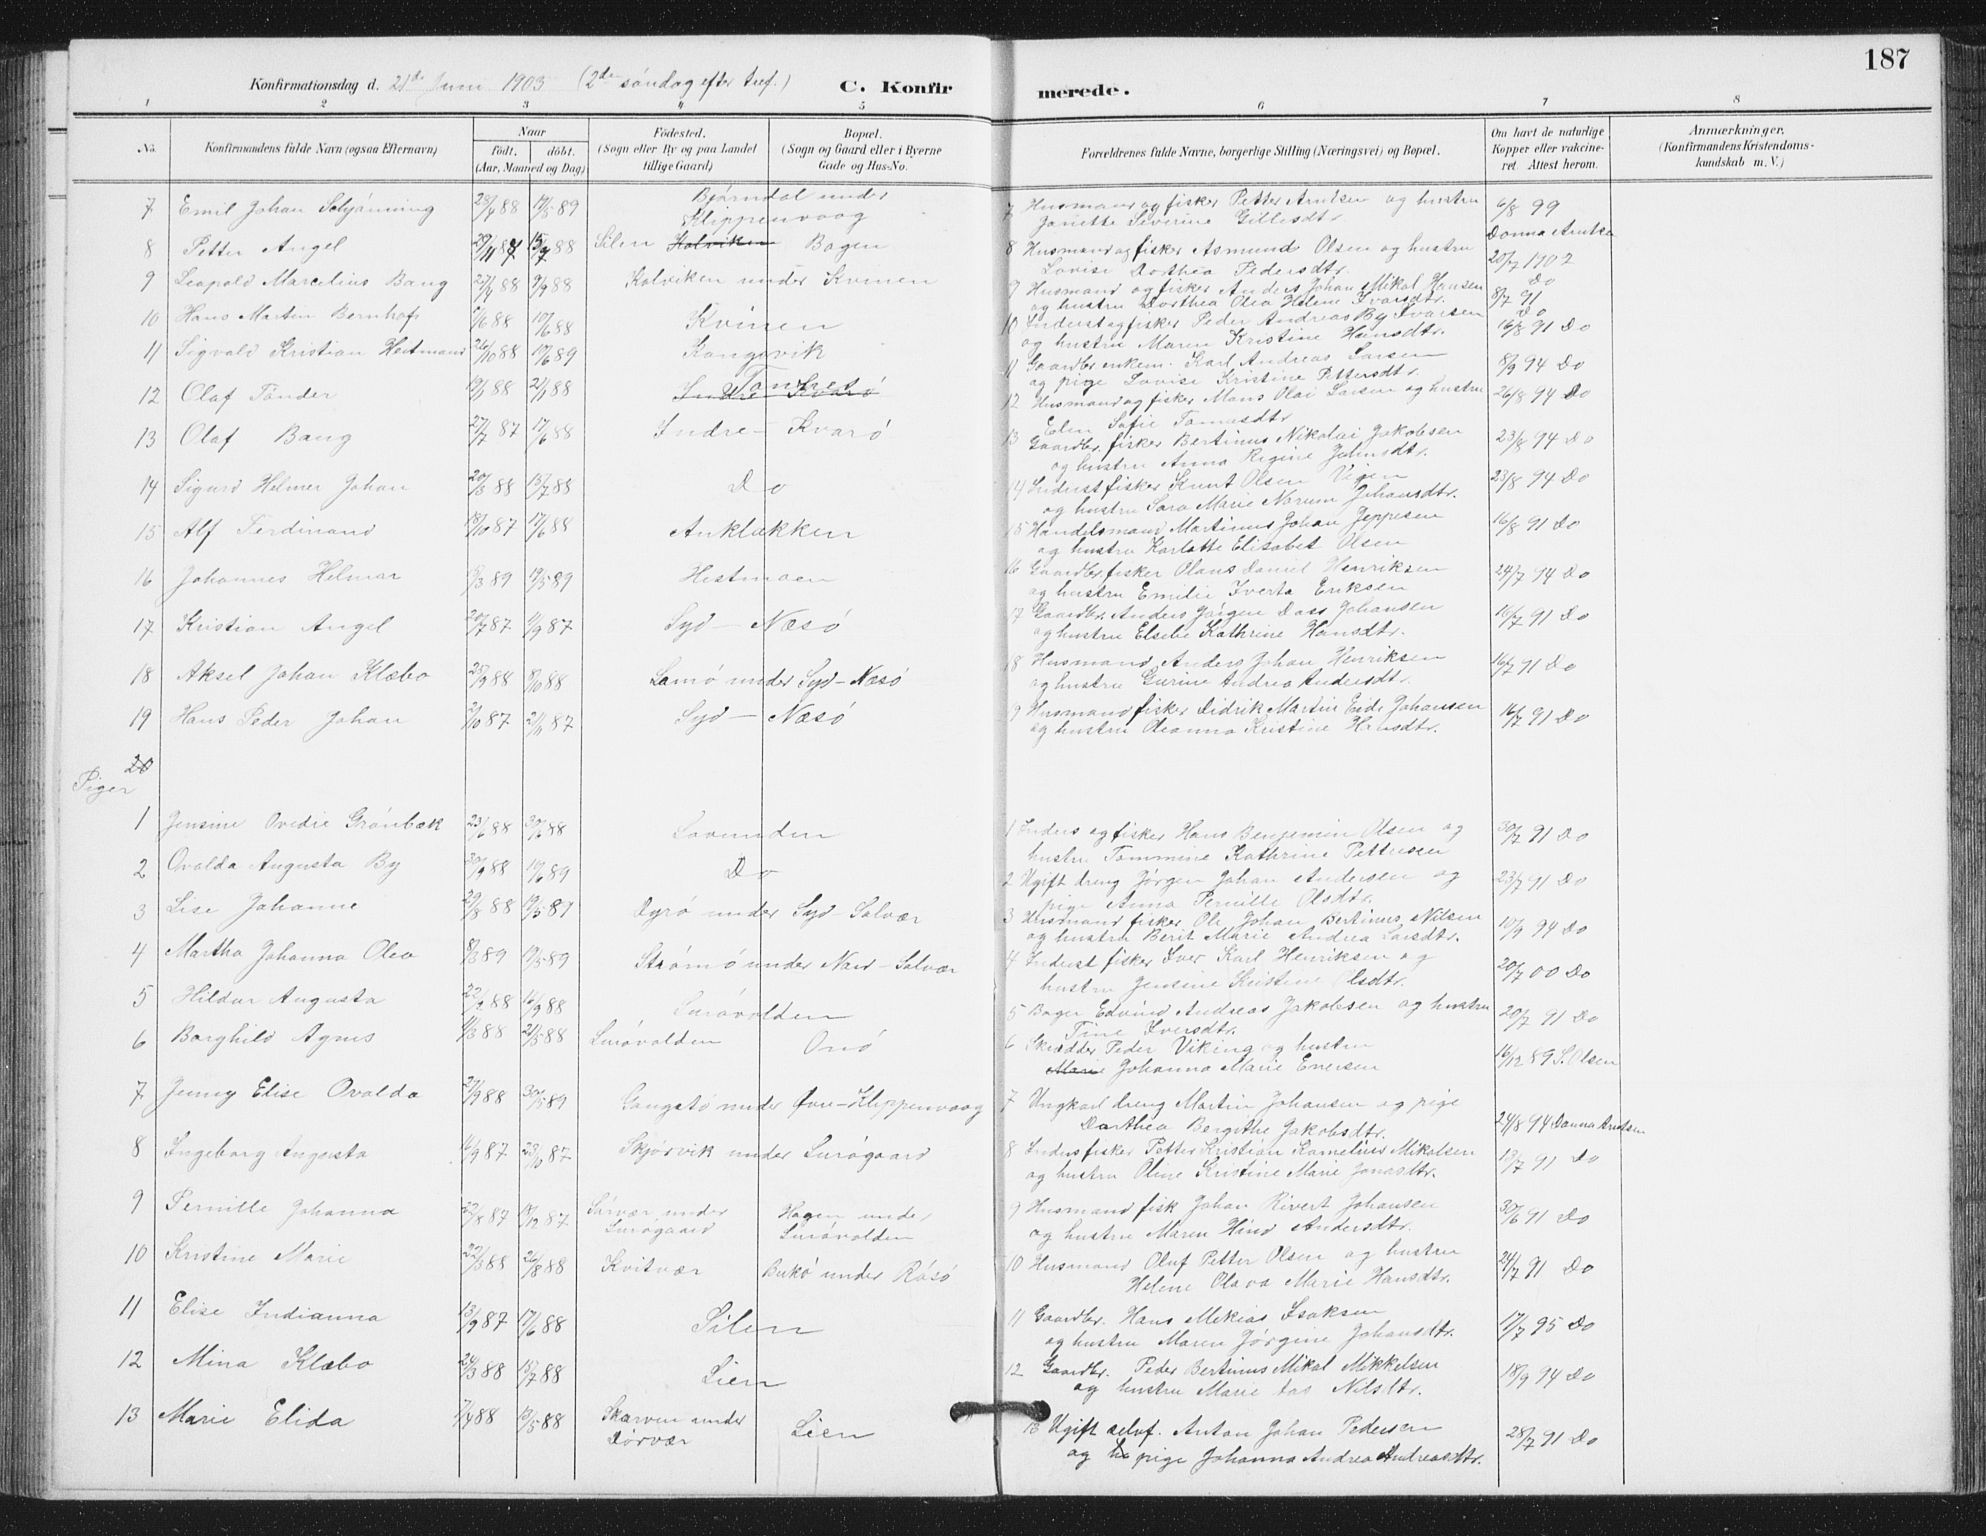 187
Konfirmationsdag d. 21de Juni 1903 (2den söndag efter tref.) C. Konfirmerede.
1 2 3 4 5 6 7 8
No. Konfirmandens fulde Navn (ogsaa Efternavn) Naar födt. döbt. (Aar, Maaned og Dag) Födested. (Sogn eller By og paa Landet tillige Gaard) Bopæl. (Sogn og Gaard eller i Byerne Gade og Hus-No. Forældrenes fulde Navne, borgerlige Stilling (Næringsvei) og Bopæl. Om havt de naturlige Kopper eller vaccineret. Attest herom. Anmærkninger. (Konfirmandens Kristendomskundskab m. V.)
7 Emil Johan Schjönning 28/4 88 19/5 89 Björndal under Klippenvaag 7 Husmand og fisker Petter Arntsen og hustru 6/8 99
Janette Severine Gillesdtr. Donna Arntsen
8 Petter Angel 29/11 87 15/7 88 Silen Kalviken Bogen 8 Husmand og fisker Asmund Olsen og hustru 20/7 1902
Lovise Dorthea Pedersdtr. Do
9 Leopold Marcelius Bang 27/4 88 9/9 88 Kalviken under Kvinen 9 Husmand og fisker Anders Johan Mikal Hansen 8/7 91
og hustru Dorthea Olea Helene Ivarsdtr. Do
10 Hans Martin Bernhof /6 88 10/6 88 Kvinen 10 Inderst og fisker Peder Andreas By Ivarsen 16/8 91 Do
og hustru Maren Kristine Hansdtr.
11 Sigvald Kristian Heitmand 26/10 88 19/6 89 Kongsvik 11 Gaardbr. enkem. Karl Andreas Larsen 8/9 94 Do
og pige Lovise Kristine Pettersdtr.
12 Olaf Tönder 19/ 88 2/ 88 Tonnes Indre Kvarö 12 Husmand og fisker Mons Olai Larsen og hustru 26/8 94 Do
Elen Sofie Tomasdtr.
13 Olaf Bang 27/7 87 17/6 88 Indre - Kvarö 13 Gaardbr. fisker Bertinus Nikolai Jakobsen 23/8 94 Do
og hustru Anna Regine Johnsdtr.
14 Sigurd Helmer Johan 20/3 88 15/7 88 Do 14 Inderst fisker Knut Olsen Vigen 23/8 94 Do
og hustru Sara Marie Norum Johansdtr.
15 Alf Ferdinand 18/10 87 17/6 88 Anklakken 15 Handelsmand Martinus Johan Jeppesen 16/8 91 Do
og hustru Karlotte Elisabet Olsen
16 Johannes Helmar /3 89 19/5 89 Hestmoen 16 Gaardbr fisker Olaus Daniel Henriksen 24/7 94 Do
og hustru Emilie Iverta Eriksen
17 Kristian Angel 20/7 87 /9 87 Syd - Næsö 17 Gaardbr. Anders Jörgen Dass Johansen 16/7 91 Do
og hustru Elsebe Kathrine Hansdtr.
18 Aksel Johan Klæbo 23/9 88 8/10 88 Lamö under Syd - Næsö 18 Husmand Anders Johan Henriksen 16/7 91 Do
og hustru Gurine Andrea Andersdtr.
19 Hans Peder Johan 2/10 87 2/11 87 Syd - Næsö 9 Husmand fisker Didrik Martin Eide Johansen 16/7 91 Do
og hustru Oleanna Kristine Hansdtr.
20
Piger
1 Jensine Ovedie Grönbæk 23/6 88 30/6 88 Lovunden 1 Inders og fisker Hans Benjamin Olsen og 30/7 91 Do
hustru Tommine Kathrine Pettresen
2 Ovalda Augusta By 30/9 88 19/6 89 Do 2 Ugift dreng Jørgen Johan Andersen og 23/7 91 Do
pige Anna Pernille Olsdtr.
3 Lise Johanne 29/8 88 19/5 89 Dyrö under Syd - Solvær 3 Husmand fisker Ole Johan Bertinus Nilsen 10/9 94 Do
og hustru Berit Marie Andrea Larsdtr.
4 Martha Johanna Olea 8/3 89 19/5 89 Strömö under Nord - Solvær 4 Inderst fisker Iver Karl Henriksen og 20/7 00 Do
hustru Jensine Kristine Olsdtr.
5 Hildur Augusta 22/2 88 16/9 88 Lurövolden 5 Bager Edvind Andreas Jakobsen og hustru 20/7 91 Do
Tine Iversdtr.
6 Borghild Agnes 11/3 88 21/5 88 Lurövolden Onö 6 Skrædder Peder Viking og hustru 16/12 89 S. Olsen
Marie Johanna Marie Enersen
7 Jenny Elise Ovalda 27/9 88 30/5 89 Gangstö under Övre - Klippenvaag 7 Ungkarl dreng Martin Johansen og pige 24/8 94 Donna Arntsen
Dorthea Bergithe Jakobsdtr.
8 Ingeborg Augusta 16/9 87 23/10 87 Skjørvik under Lurögaard 8 Inders fisker Petter Kristian Kornelius Mikalsen 13/7 91 Do
og hustru Oline Kristine Marie Jonasdtr.
9 Pernille Johanna 22/8 87 18/12 87 Sörvær under Lurögaard Hagen under Lurövolden 9 Husmand fisk Johan Rivert Johansen 30/6 91 Do
og hustru Maren Hind Andersdtr.
10 Kristine Marie 22/3 88 26/8 88 Kvitvær Bukö under Rösö 10 Husmand Oluf Petter Olsen og hustru 24/7 91 Do
Helene Olava Marie Hansdtr.
11 Elise Indianna 13/9 87 17/6 88 Silen 11 Gaardbr. Hans Mekias Isaksen 17/7 95 Do
og hustru Maren Jørgine Johansdtr.
12 Mina Klæbo 24/3 88 15/7 88 Lien 12 Gaardbr. Peder Bertinus Mikal Mikkelsen 18/9 94 Do
og hustru Marie Nilsdtr.
13 Marie Elida 7/4 88 13/5 88 Skarven under Dörvær Lien 13 Ugift selvf. Anton Johan Pedersen 28/7 91 Do
og pige Johanna Andrea Andreasdtr.